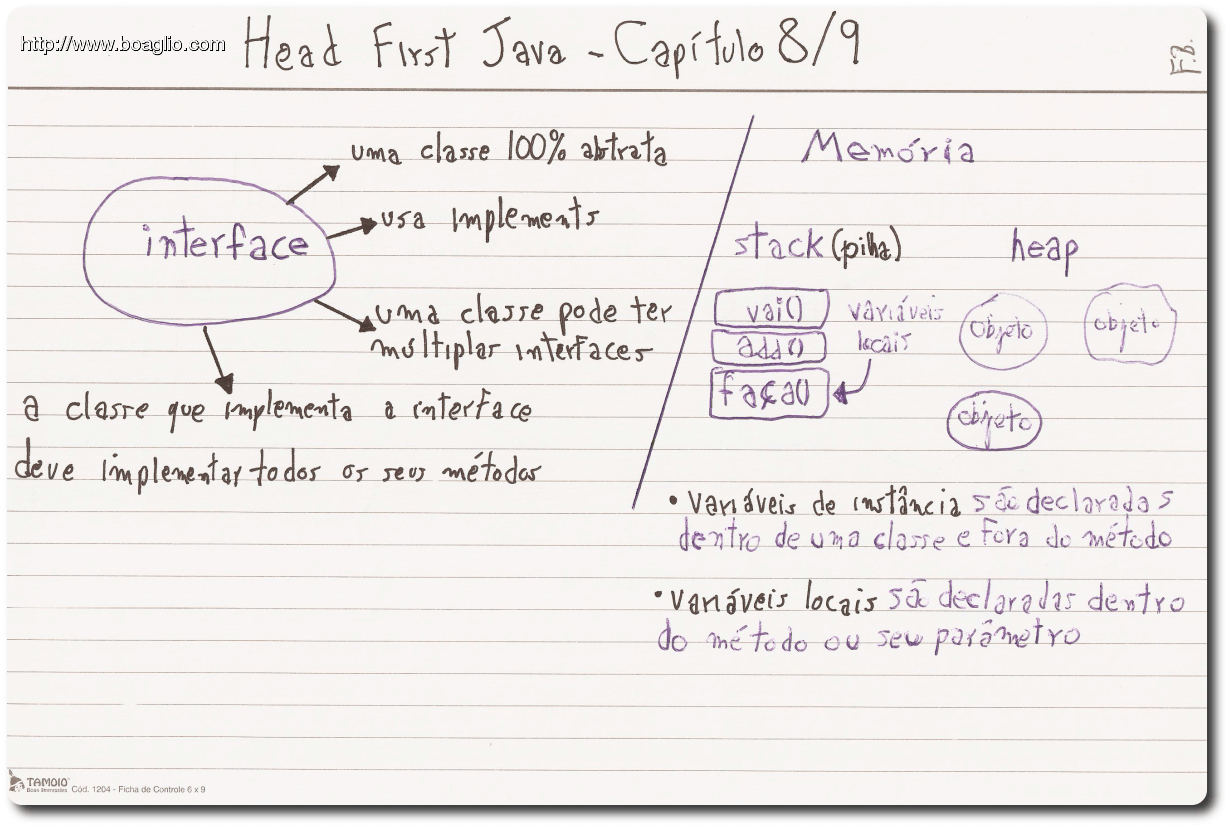 http://www.boaglio.com
Head First Java - Capítulo 8/9
F.B.
uma classe 100% abtrata
usa implements
interface
uma classe pode ter
múltiplas interfaces
a classe que implementa a interface
deve implementar todos os seus métodos
Memória
stack (pilha)
heap
vai()
add()
faça()
variáveis
locais
objeto
objeto
objeto
• Variáveis de instância são declaradas
dentro de uma classe e fora do método
• Variáveis locais são declaradas dentro
do método ou seu parâmetro
TAMOIO
Cód. 1204 - Ficha de Controle 6 x 9